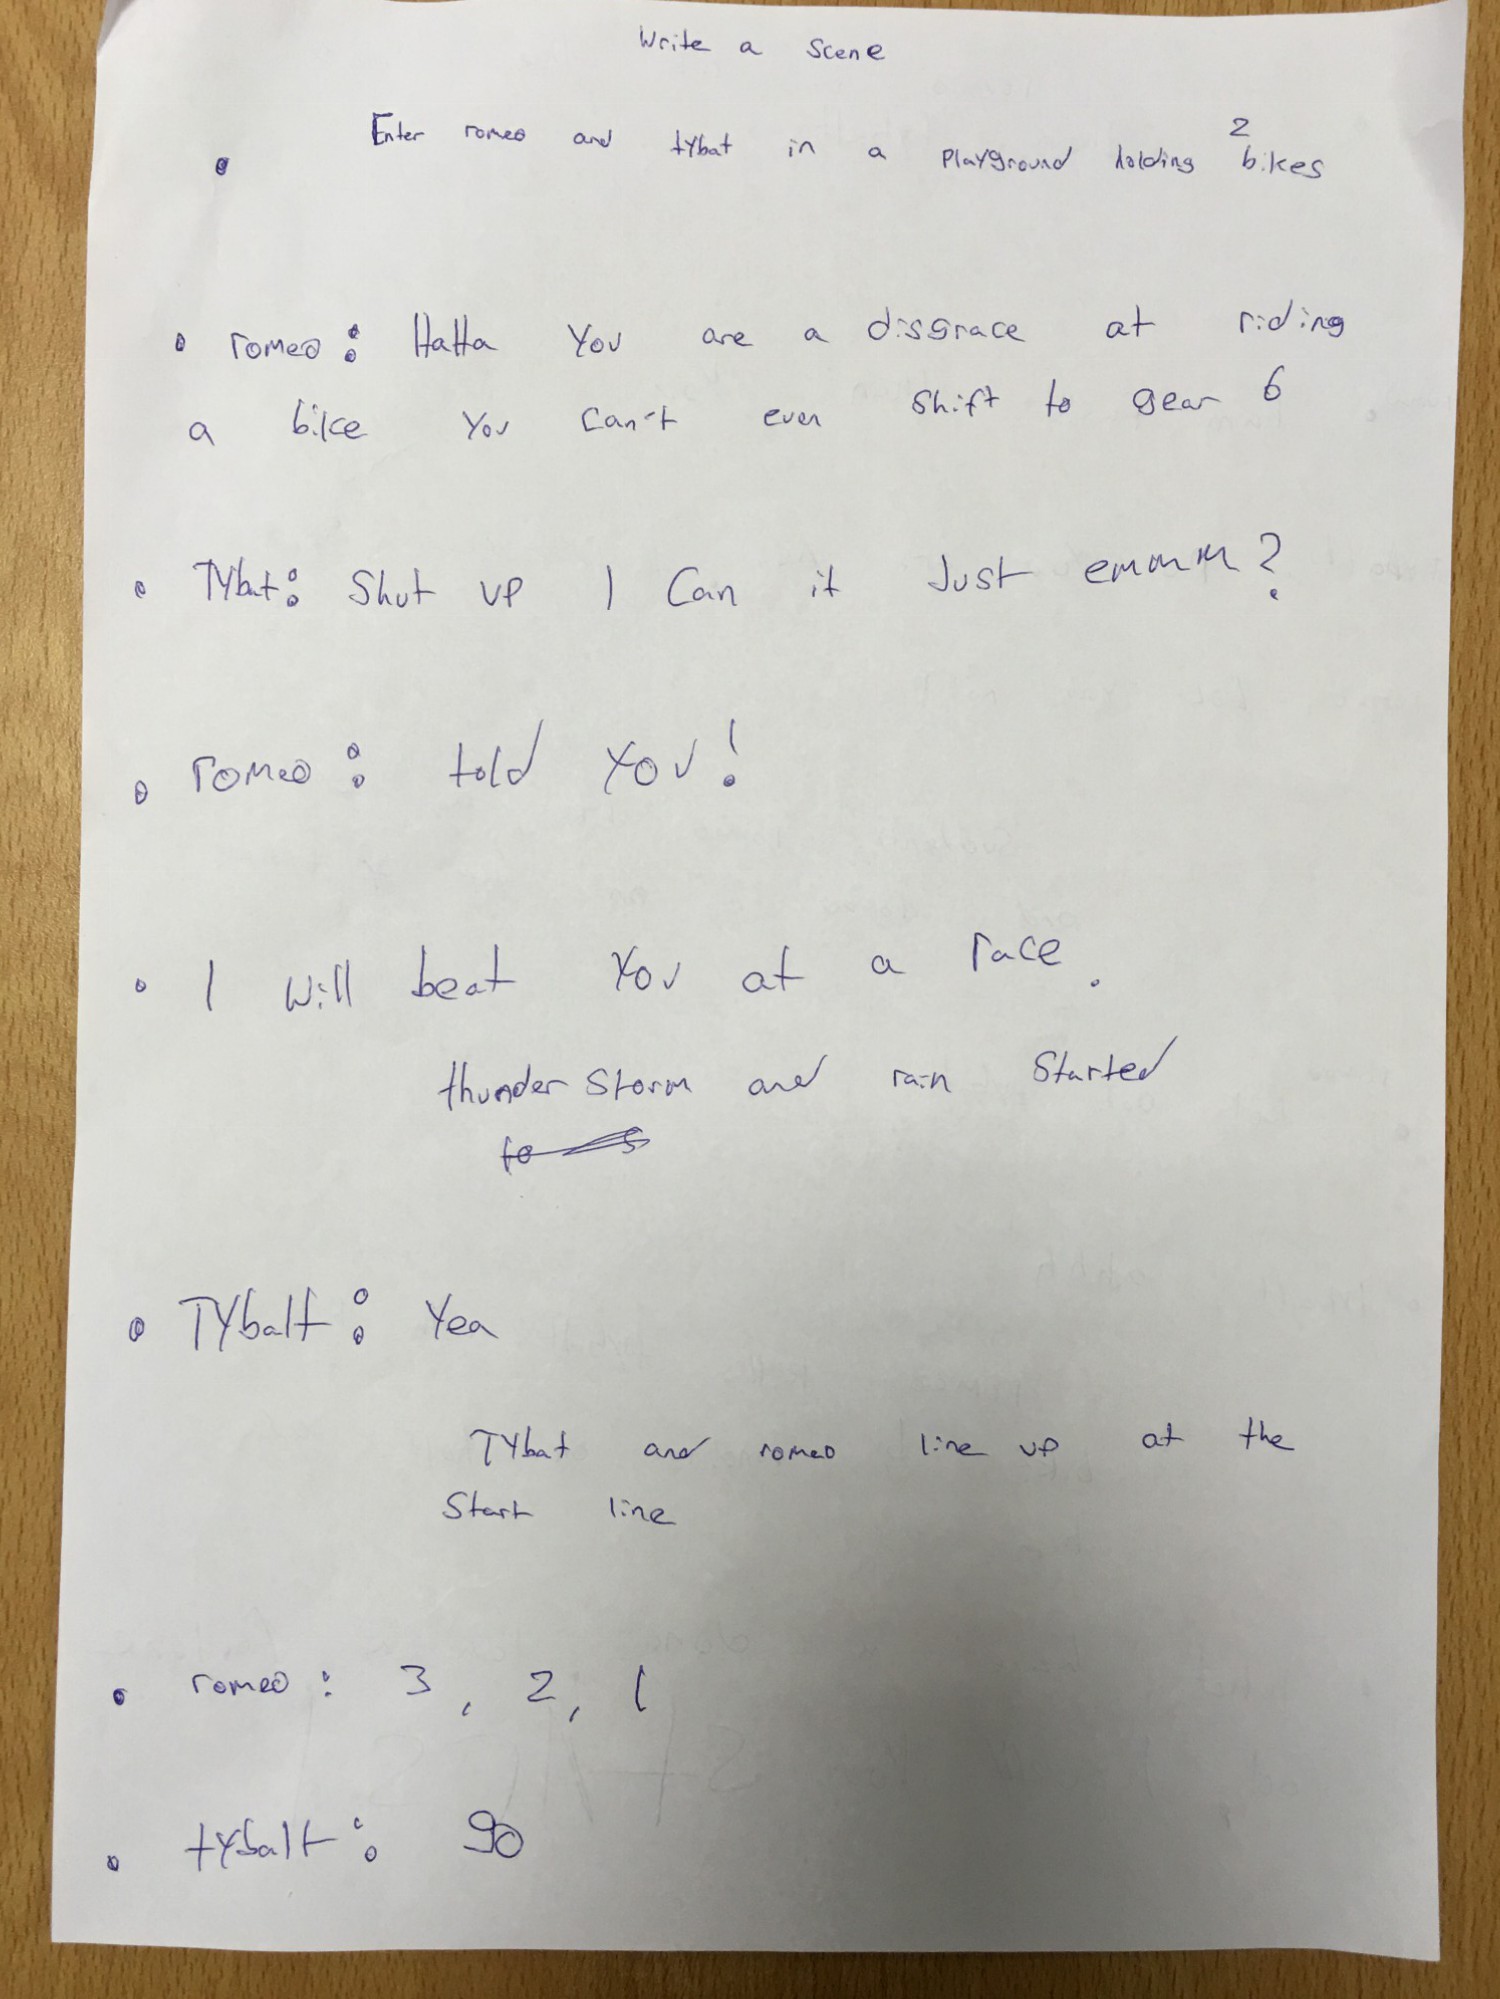 Write a scene
Enter romeo and tybat in a playground holding 2 bikes
romeo: HaHa You are a disgrace at riding
a bike You can't even shift to gear 6
TYbat: Shut up I can it Just emmm?
romeo: told You!
I will beat You at a race.
thunder storm and rain started
TYbalt: Yea
TYbat and romeo line up at the
Start line
romeo: 3, 2, 1
tybalt: go